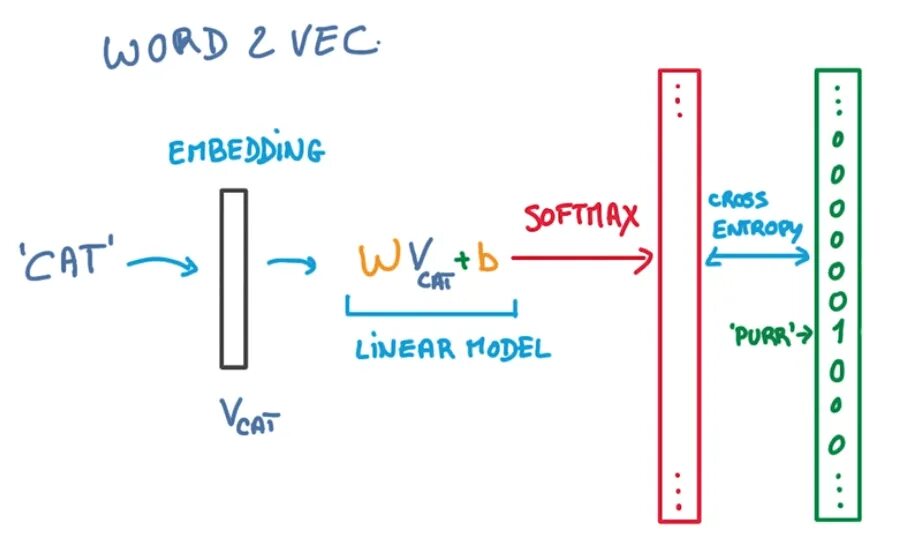 WORD 2 VEC.
EMBEDDING
'CAT'
V CAT
W V CAT + b
LINEAR MODEL
SOFTMAX
⋮
⋮
CROSS
ENTROPY
'PURR'→
⋮
0
0
0
0
0
0
1
0
0
0
⋮